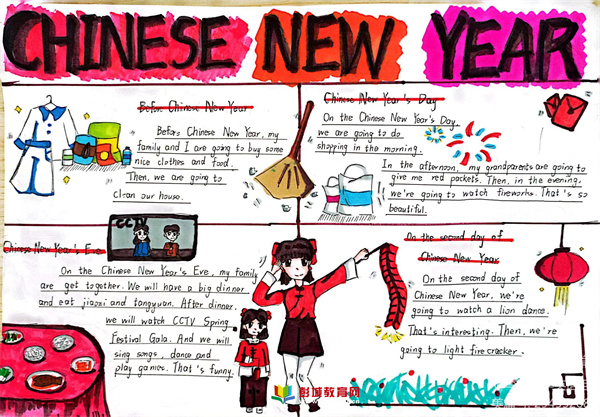 CHINESE NEW YEAR
Before Chinese New Year
Before Chinese New Year, my
family and I are going to buy some
nice clothes and food.
Then, we are going to
clean our house.
Chinese New Year's Day
On the Chinese New Year's Day
we are going to do
shopping in the morning.
In the afternoon, my grandparents are going to
give me red pockets. Then, in the evening,
we're going to watch fireworks. That's so
beautiful.
CCTV
Chinese New Year's Eve
On the Chinese New Year's Eve, my family
are get together. We will have a big dinner
and eat jiaozi and tangyuan. After dinner,
we will watch CCTV Spring
Festival Gala. And we will
sing songs, dance and
play games. That's funny.
On the second day of
Chinese New Year
On the second day of
Chinese New Year, we're
going to watch a lion dance.
That's interesting. Then, we're
going to light firecracker.
彭城教育网